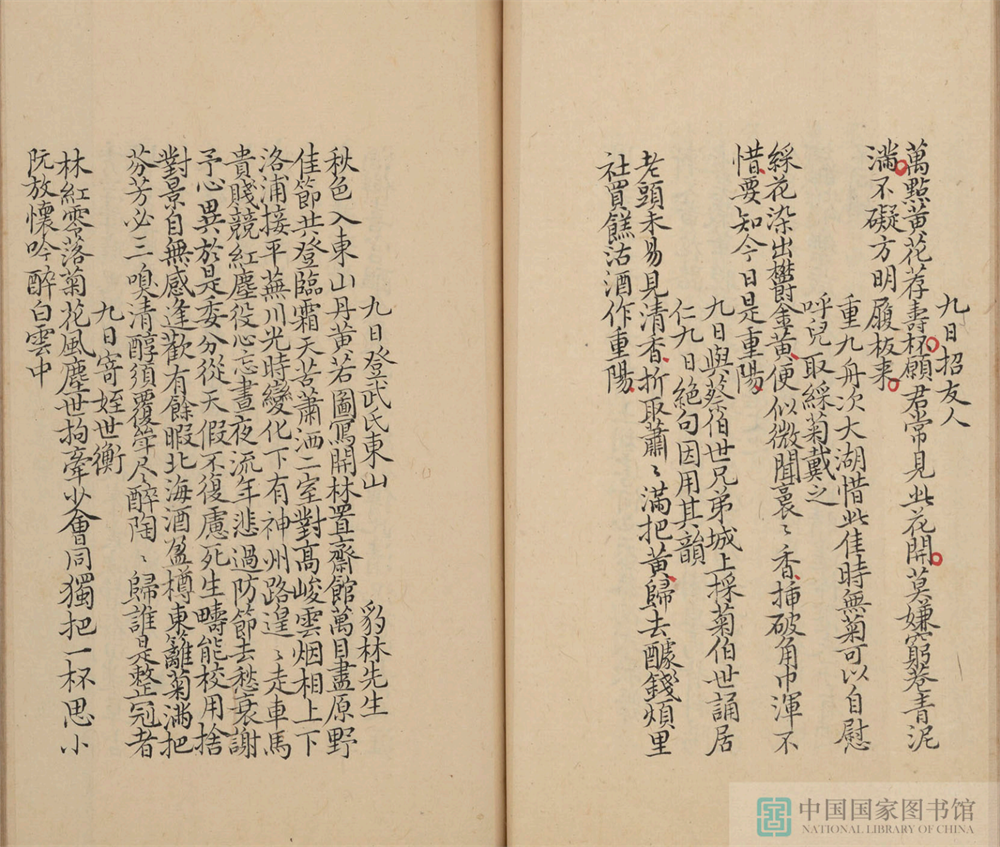 九日招友人
萬點黃花荐壽杯願君常見此花開莫嫌窮巷青泥
滿不礙方明履板来
重九舟次大湖惜此佳時無菊可以自慰
呼兒取綵菊戴之
綵花染出鬱金黃便似微聞裊〻香揷破角巾渾不
惜要知今日是重陽
九日與蔡伯世兄弟城上採菊伯世誦居
仁九日絕句因用其韻
老頭未易見清香折取蕭〻滿把黃歸去醵錢煩里
社買餻沽酒作重陽
九日登武氏東山 豹林先生
秋色入東山丹黃若圖寫開林置齋館萬目盡原野
佳節共登臨霜天苦蕭洒二室對高峻雲烟相上下
洛浦接平蕪川光時變化下有神州路遑〻走車馬
貴賤競紅塵役心忘晝夜流年悲過防節去愁衰謝
予心異於是委分從天假不復慮死生疇能校用捨
對景自無感逢歡有餘暇北海酒盈樽東籬菊滿把
芬芳必三嗅清醇須覆斝尽醉陶〻歸誰是整冠者
九日寄姪世衡
林紅零落菊花風塵世拘牽少會同獨把一杯思小
阮放懷吟醉白雲中
中国国家图书馆
NATIONAL LIBRARY OF CHINA